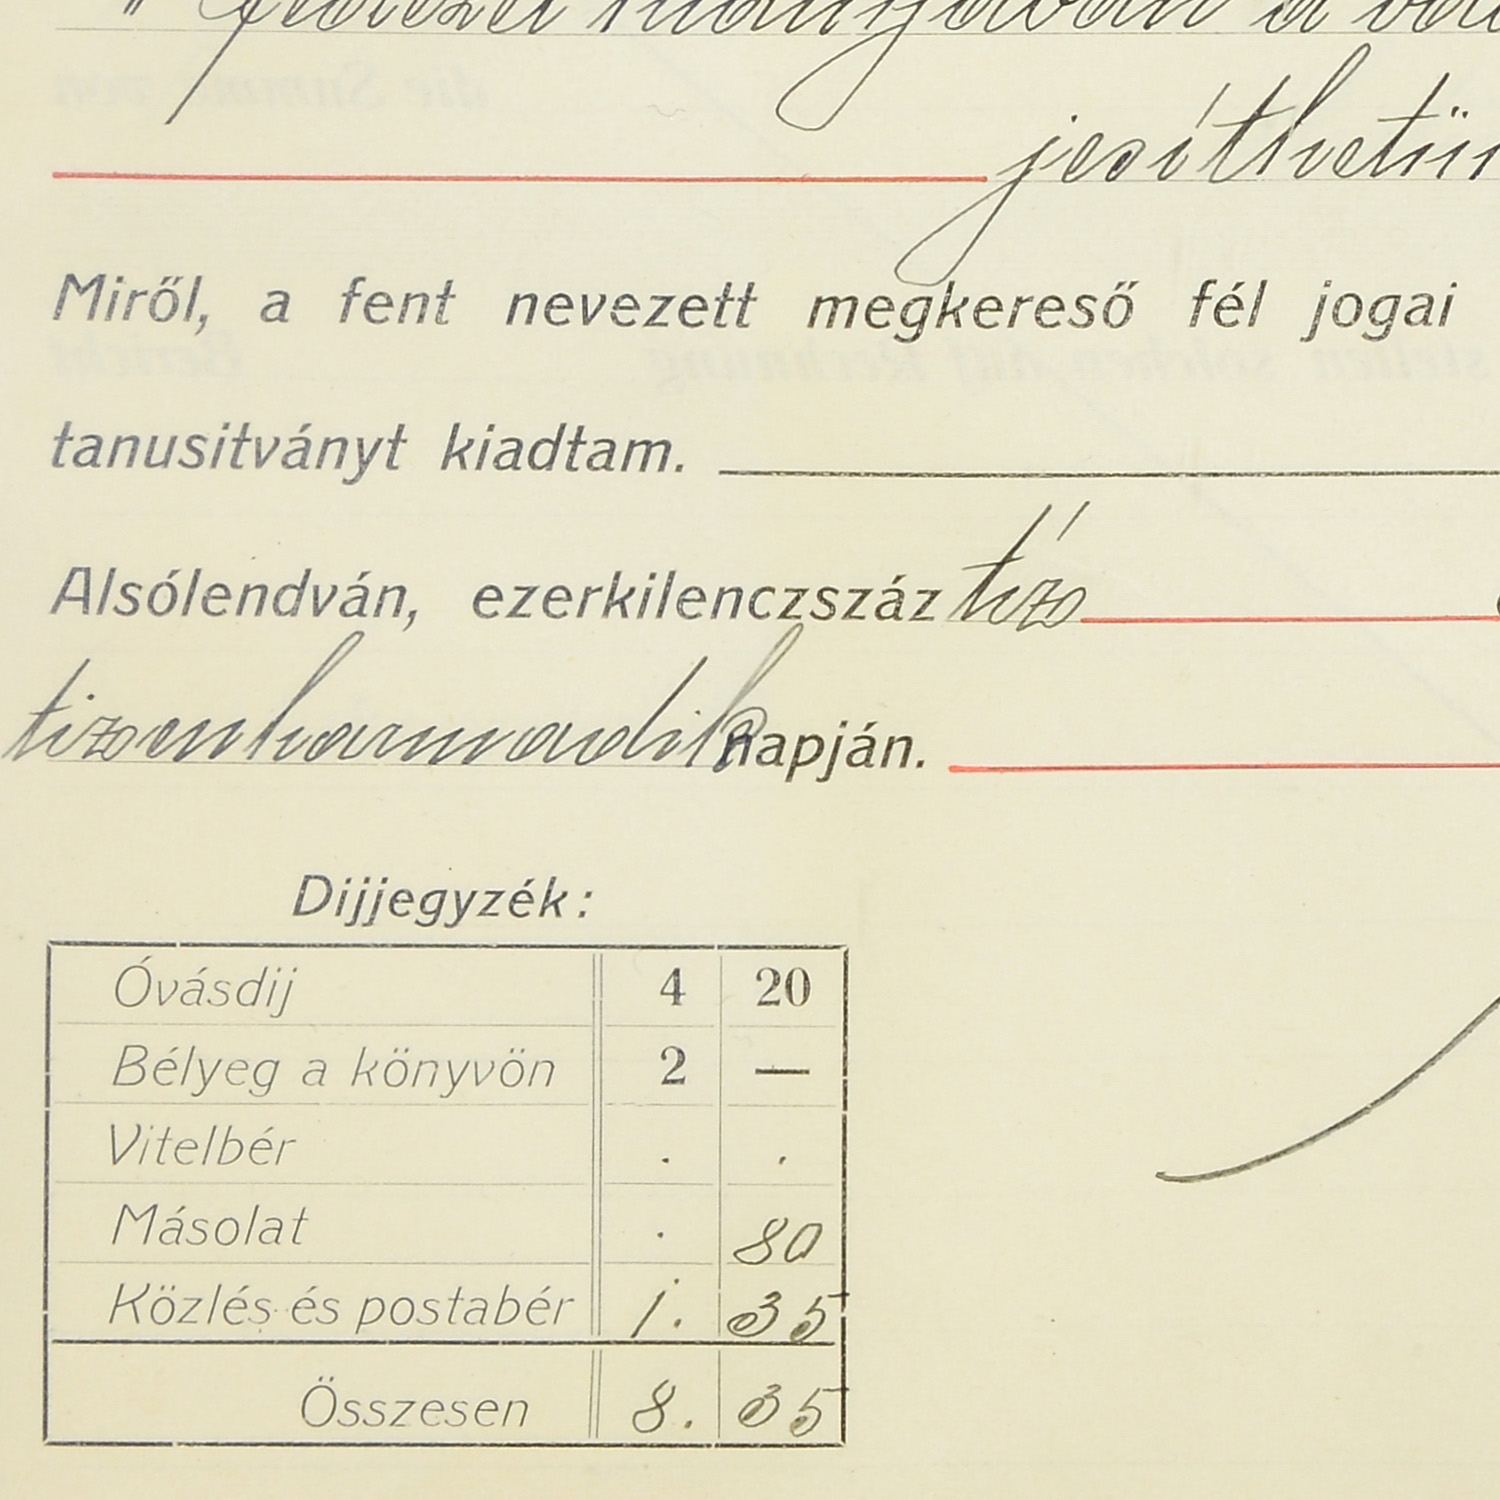 fedezet hiányában a
jesíthetjük
Miről, a fent nevezett megkereső fél jogai
tanusitványt kiadtam.
Alsólendván, ezerkilenczszáz tíz
tizenharmadik napján.
Dijjegyzék:
Óvásdij 4 20
Bélyeg a könyvön 2 —
Vitelbér . .
Másolat . 80
Közlés és postabér 1. 35
Összesen 8. 35